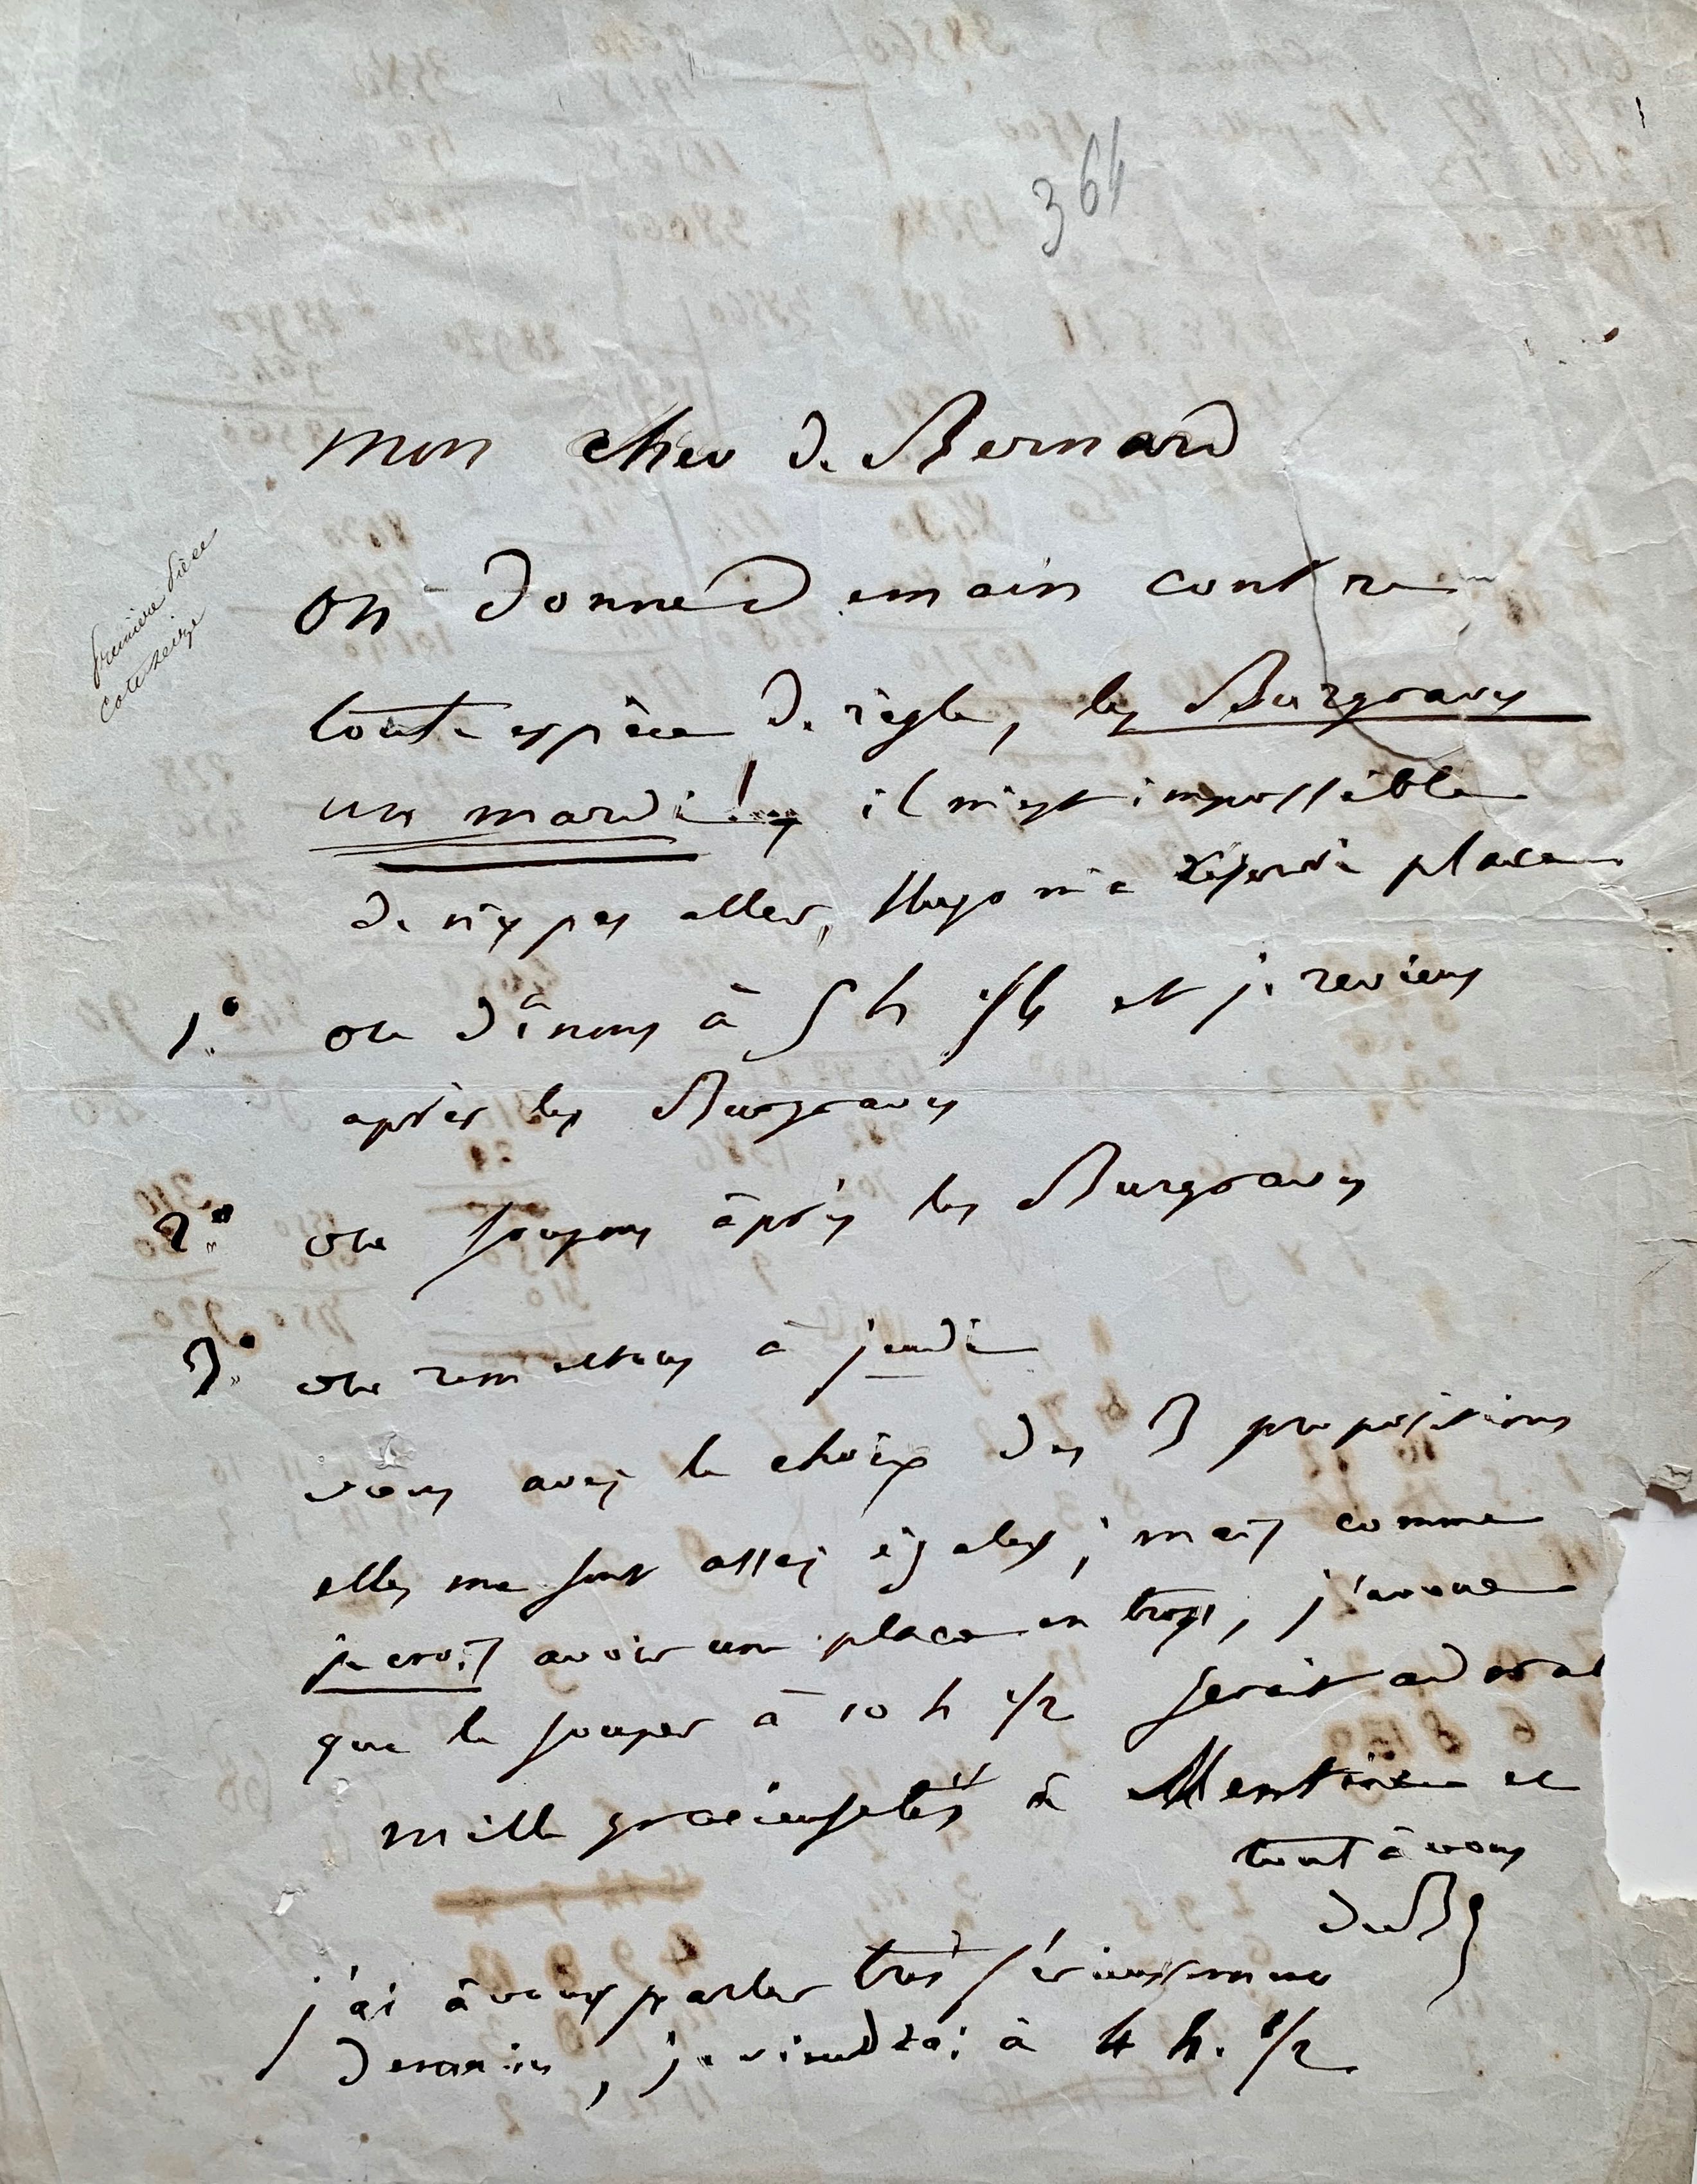 364
mon cher de Bernard
on donne demain contre
toute espèce de règle, les Burgraves
un mardi ! il m'est impossible
de n'y pas aller, Hugo m'a réservé place
1° ou dînons à 5 h 1/4 et je reviens
après les Burgraves
2° ou soupons après les Burgraves
3° ou remettons à jeudi
vous avez le choix des 3 propositions
elles me sont assez égales ; mais comme
je crois avoir une place en trop, j'avoue
que le souper à 10 h 1/2 serait adorab
mille gracieusetés à et
tout à vous
de Bc
j'ai à vous parler très sérieusement
demain, je viendrai à 4 h. 1/2
première pièce
cote seize